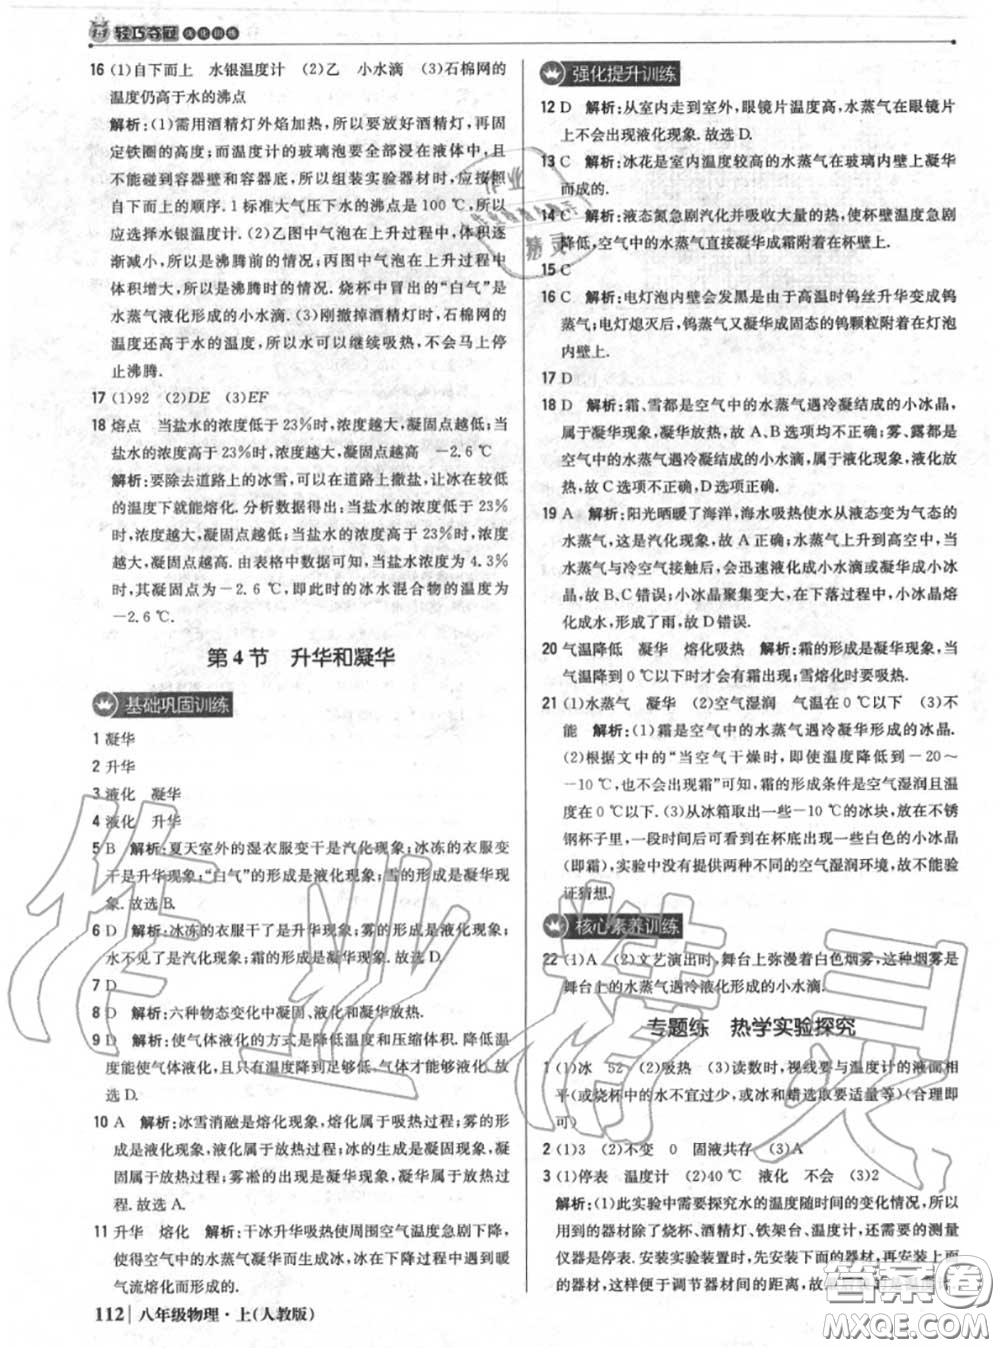 1+1 轻巧夺冠 优化训练
16 (1)自下而上 水银温度计 (2)乙 小水滴 (3)石棉网的
温度仍高于水的沸点
解析:(1)需用酒精灯外焰加热,所以要放好酒精灯,再固
定铁圈的高度;而温度计的玻璃泡要全部浸在液体中,但
不能碰到容器壁和底,所以组装实验器材时,应按照自下
而上的顺序.1标准大气压下水的沸点是100 ℃,所以
应选择水银温度计.(2)乙图中气泡在上升过程中,体积逐
渐减小,所以是沸腾前的情况;丙图中气泡在上升过程中,
体积变大,所以是沸腾时的情况.烧杯中冒出的“白气”是
水蒸气液化形成的小水滴.(3)刚撤掉酒精灯时,石棉网的
温度还高于水的温度,所以水可以继续吸热,不会马上停
止沸腾.
17 (1)92 (2)DE (3)EF
18 熔点 当盐水的浓度低于23%时,浓度越大,凝固点越低;当
盐水的浓度高于23%时,浓度越大,凝固点越高 －2.6 ℃
解析:要除去道路上的冰雪,可以在道路上撒盐,让冰在较低
的温度下就能熔化.分析数据得出:当盐水的浓度低于23%
时,浓度越大,凝固点越低;当盐水的浓度高于23%时,浓度
越大,凝固点越高.由表格中数据可知,当盐水浓度为4.3%
时,其凝固点为－2.6 ℃,即此时的冰水混合物的温度为
－2.6 ℃.
第4节 升华和凝华
基础巩固训练
1 凝华
2 升华
3 液化 凝华
4 液化 升华
5 B 解析:夏天室外的湿衣服变干是汽化现象;冰冻的衣服变
干是升华现象;“白气”的形成是液化现象;雪的形成是凝华现
象.故选B.
6 D 解析:冰冻的衣服干了是升华现象;雾的形成是液化现象;
水不见了是汽化现象;霜的形成是凝华现象.
7 D
8 D 解析:六种物态变化中凝固、液化、凝华放热.
9 D 解析:使气体液化的方式是降低温度和压缩体积.要
使气体液化,所有气体只要降温到足够低,都能液化.故
选D.
10 A 解析:冰雪消融是熔化现象,熔化属于吸热过程;雾的形
成是液化现象,液化属于放热过程;冰的生成是凝固现象,凝
固属于放热过程;雾凇的形成是凝华现象,凝华属于放热过
程.故选A.
11 升华 熔化 解析:干冰升华吸热使周围空气温度急剧下降,
使得空气中的水蒸气凝华而生成冰,冰在下落的过程中,遇暖
气流熔化而形成的.
112 八年级物理·上(人教版)
强化提升训练
12 D 解析:从室内走到室外,眼镜片温度高,水蒸气在眼镜片
上不会出现液化现象.故选D.
13 C 解析:冰花是室内温度较高的水蒸气在玻璃内壁上凝华
而成的.
14 C 解析:液态氮急剧汽化并吸收大量的热,使杯壁温度急剧
降低,空气中的水蒸气直接凝华成霜附着在杯壁上.
15 C
16 C 解析:电灯泡内壁会发黑是由于高温时钨丝升华变成钨
蒸气;电灯熄灭后,钨蒸气又凝华成固态的钨颗粒附着在灯泡
内壁上.
17 D
18 D 解析:霜、雪都是空气中的水蒸气遇冷凝结成的小冰晶,
属于凝华现象,凝华放热.故A、B选项均正确.雾、露都是
空气中的水蒸气遇冷凝结成的小水滴,属于液化现象,液化放
热.故C选项正确,D选项错误.
19 A 解析:阳光晒暖了海洋,海水吸热使水从液态变为气态的
水蒸气,这是汽化现象,故A正确;水蒸气上升到高空中,当
水蒸气与冷空气接触后,会迅速液化成小水滴或凝华成小冰
晶,故B、C错误;小冰晶聚集变大,在下落过程中,小冰晶熔
化成水,形成了雨,故D错误.
20 气温降低 凝华 熔化吸热 解析:霜的形成是凝华现象,在
温度降到0 ℃以下时才会有霜出现;雪熔化时要吸热.
21 (1)水蒸气 凝华 (2)空气湿润 气温在0 ℃以下 (3)不
能 解析:(1)霜是空气中的水蒸气遇冷凝华形成的冰晶.
(2)根据文中的“当空气干燥时,即使温度降低到－20～
－10 ℃,也不会出现霜”可知,霜的形成条件是空气湿润且温
度在0 ℃以下.(3)从冰箱取出一些－10 ℃的冰块,放在不锈
钢杯子里,一段时间后可观察到在杯底出现一些白色的小冰晶
(即霜),实验中没有提供两种不同的空气湿润环境,故不能验
证猜想.
核心素养训练
22 (1)A (2)文艺演出时,舞台上弥漫着白色烟雾,这种烟雾是
舞台上的水蒸气遇冷液化形成的小水滴.
专题练 热学实验探究
1 (1)冰 52 (2)吸热 (3)读数时,视线要与温度计的液面相
平(或烧杯中的水不宜过少,或冰和蜡选取要适量等)(合理即
可)
2 (1)3 (2)不变 0 固液共存 (3)A
3 (1)停表 温度计 (2)40 ℃ 液化 不会 (3)2
解析:(1)此实验中需要探究水的温度随时间的变化情况,所以
用到的器材除了烧杯、酒精灯、铁架台、温度计,还需要的测量
仪器是停表.安装实验装置时,先安装下面的器材,再安装上面
的器材,这样便于调节器材间的距离,故
作业精灵
答案圈
MXQE.COM